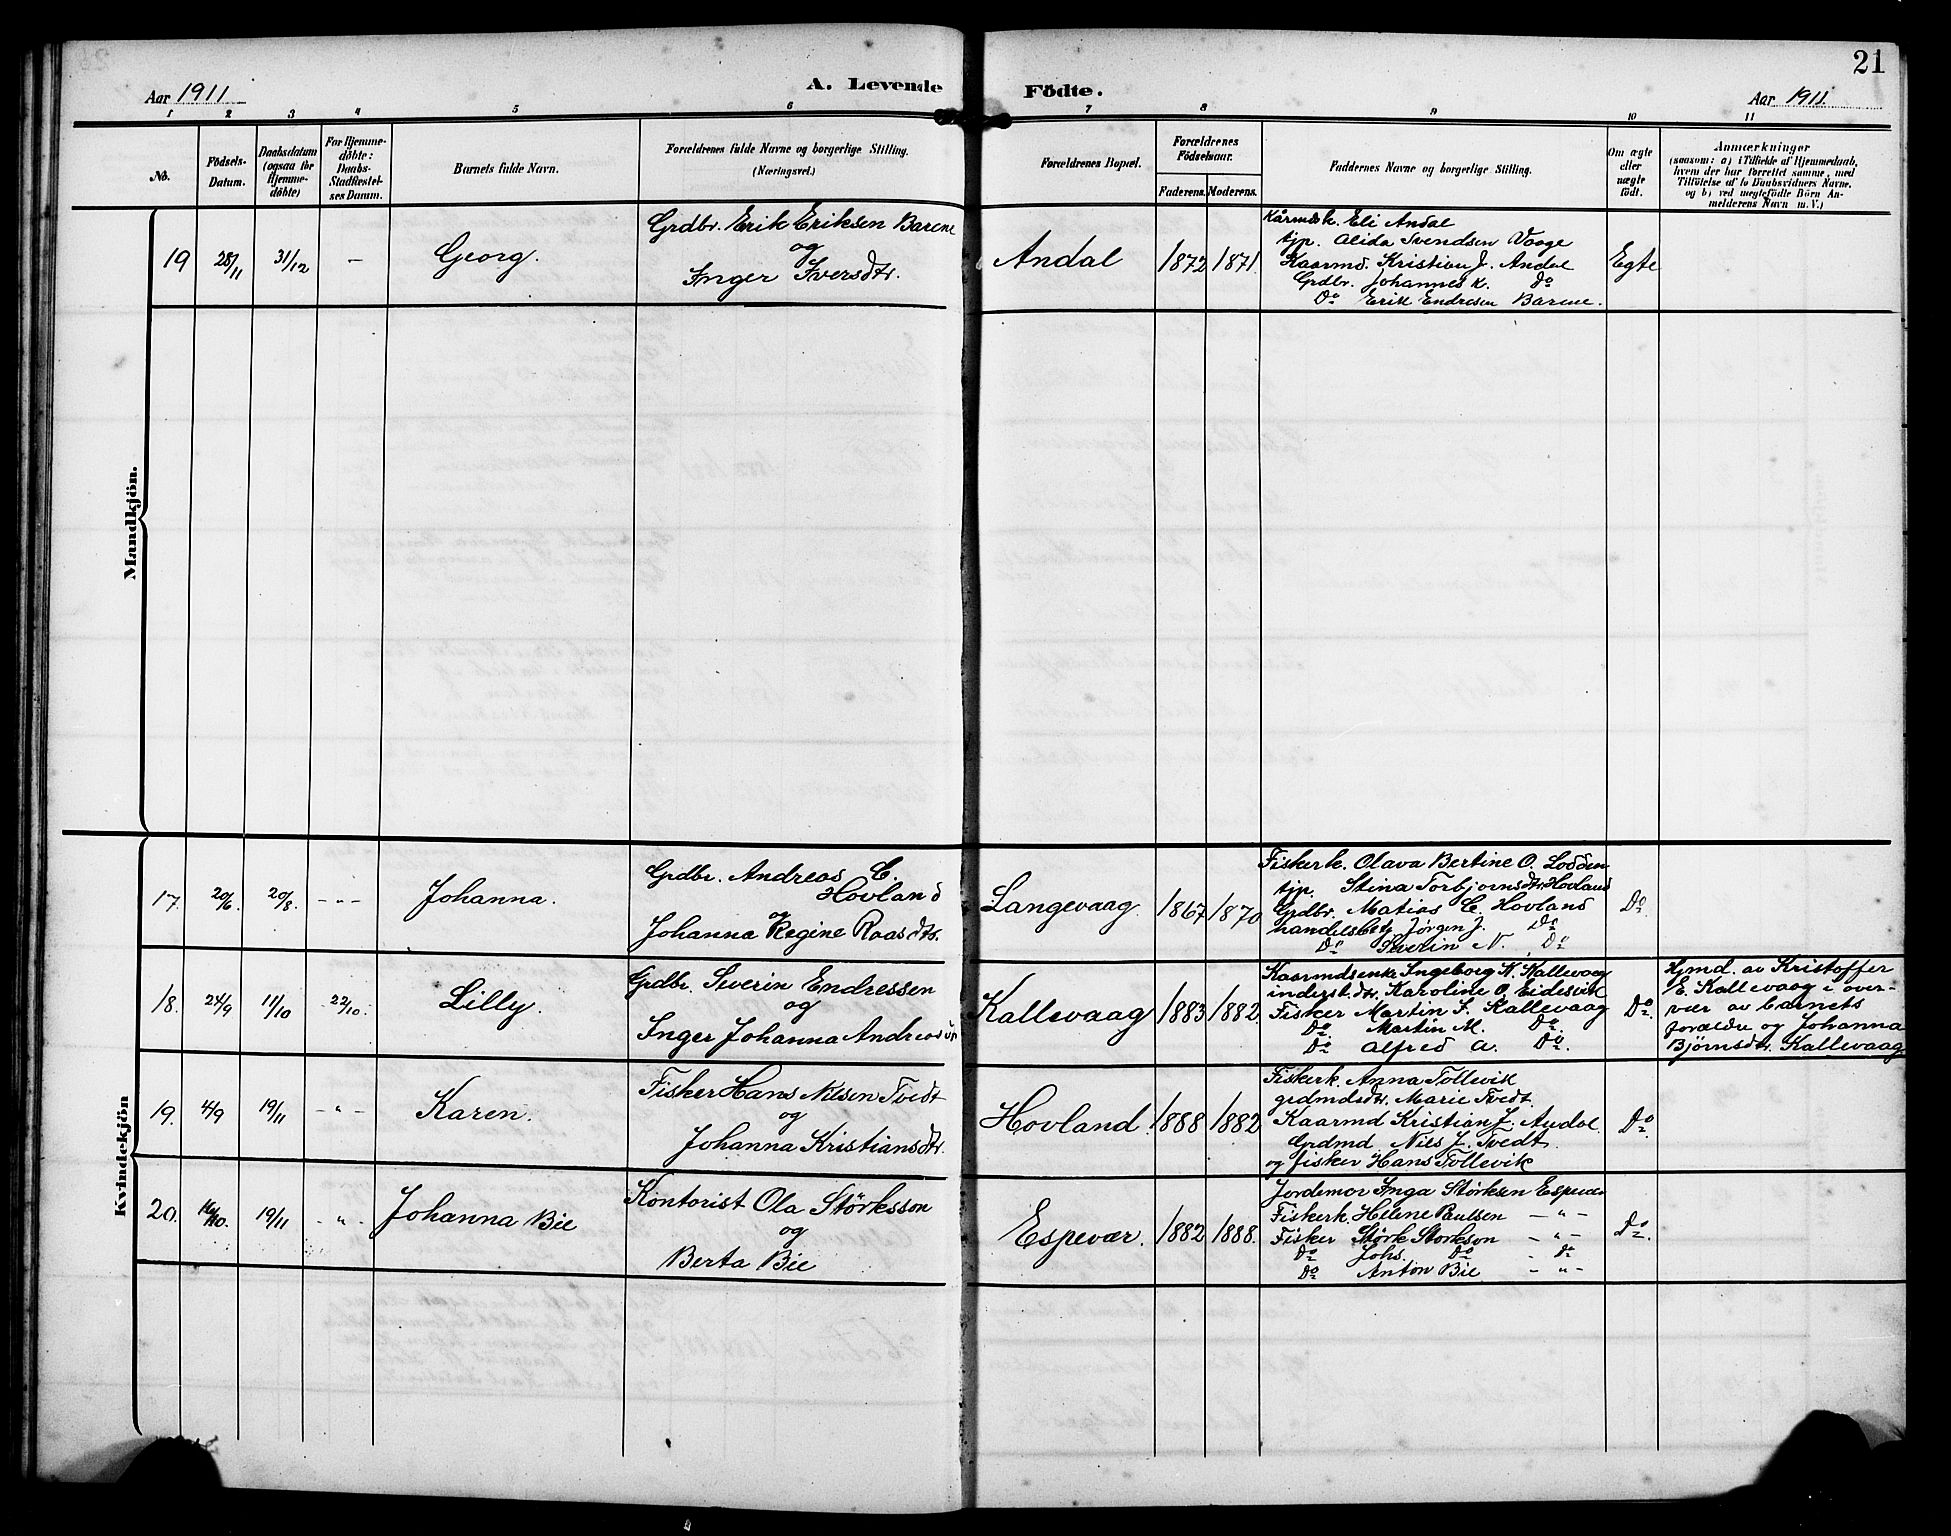 21
Aar 1911
A. Levende
Födte.
Aar 1911.
1 2 3 4 5 6 7 8 9 10 11
No.
Födsels-
Datum.
Daabsdatum
(ogsaa for
Hjemme-
döbte)
For Hjemme-
döbte:
Daabs-
Stadfæstel-
ses Datum.
Barnets fulde Navn.
Forældrenes fulde Navne og borgerlige Stilling.
(Næringsvei.)
Forældrenes Bopæl.
Forældrenes
Födselsaar.
Faderens.
Moderens.
Faddernes Navne og borgerlige Stilling.
Om ægte
eller
uægte
födt.
Anmærkninger
(saasom: a) i Tilfælde af Hjemmedaab,
hvem der har forrettet samme, med
Tilföielse af to Daabsvidners Navne,
og b) ved uegtefödte Börn An-
melderens Navn m. V.)
Mandkjön.
19 28/11 31/12 —
Georg.
Grdbr. Erik Eriksen Barene
og
Inger Iversdtr.
Andal
1872 1871.
Kårmdsk. Eli Andal
tjp. Alida Svendsen Vaage
Kaarmd. Kristian J. Andal
Grdbr. Johannes K. Do
Do Erik Endresen Barene.
Egte
Kvindekjön
17. 20/6. 20/8. — " —
Johanna.
Grdbr. Andreas C.
Hovland
og
Johanna Regine Roasdtr.
Langevaag.
1867 1870
Fiskerk. Olava Bertine O. Lodden
tjp. Stina Torbjornsdtr Hovland
Grdbr. Matias C. Hovland
handelsbetj Jørgen J. Do
Do Severin N. Do
Do
18. 24/9 11/10 22/10.
Lilly.
Grdbr. Severin Endressen
og
Inger Johanna Andreasdtr
Kallevaag
1883 1882.
Kaarmdsenke Ingeborg N. Kallevaag
inderstdtr. Karoline O. Eidesvik
Fisker Martin S. Kallevaag
Do Martin M. Do.
Do Alfred A. Do.
Do.
Hjmd. av Kristoffer
E. Kallevaag i over-
vær av barnets
forældre og Johanna
Bjørnsdtr. Kallevaag
19. 4/9 19/11 — " —
Karen.
Fisker Hans Nilsen Tvedt
og
Johanna Kristiansdtr.
Hovland.
1888 1882
Fiskerk. Anna Tollevik
grdmdsdtr. Marie Tvedt.
Kaarmd Kristian J. Andal.
Grdmd Nils J. Tvedt.
og fisker Hans Tollevik
Do
20. 16/10. 19/11 — " —
Johanna Bie
Kontorist Ola Størksson
og
Berta Bie
Espevær.
1882 1888.
Jordemor Inga Størksen Espevær
Fiskerk. Helene Paulsen — " —
Fisker Størk Storkson — " —
Do Johs. Do - Do
Do Anton Bie — " —
Do.